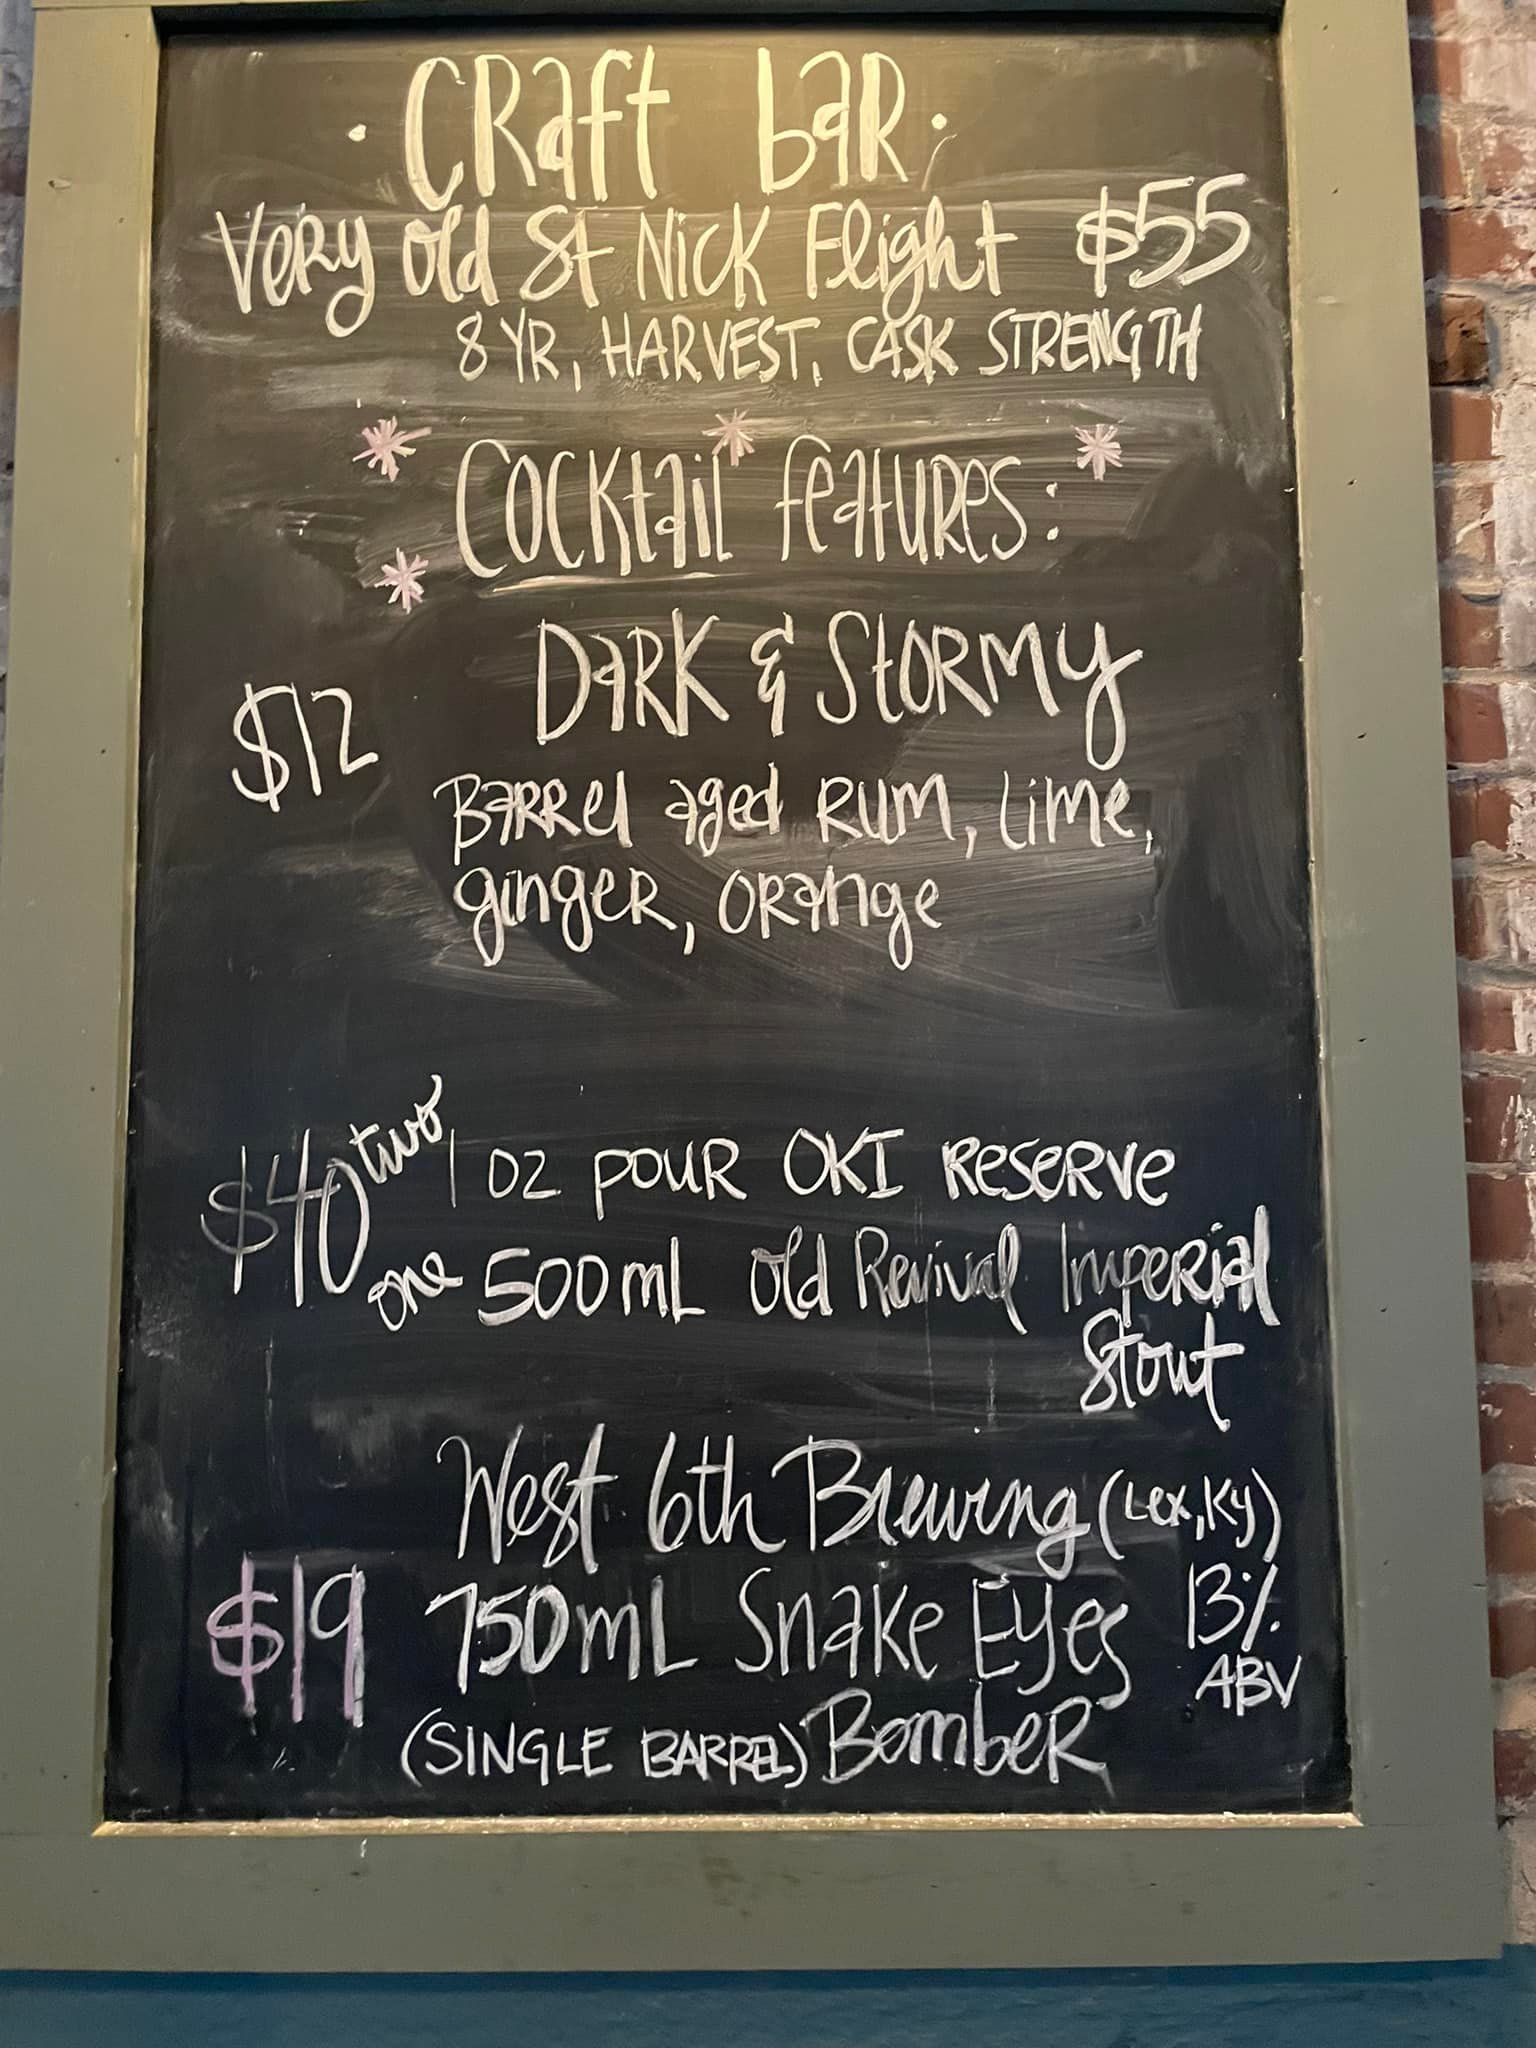 · Craft bar ·
Very old St Nick Flight $55
8 YR, HARVEST, CASK STRENGTH
Cocktail features:
Dark & Stormy
$12
Barrel aged Rum, Lime,
ginger, orange
$40 two 1 oz POUR OKI RESERVE
one 500mL Old Revival Imperial
Stout
West 6th Brewing (Lex, Ky)
$19 750mL Snake Eyes 13%
ABV
(SINGLE BARREL) Bomber